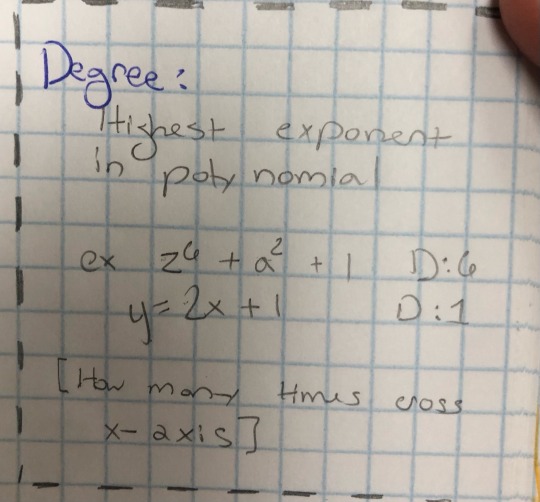 Degree:
Highest exponent
in polynomial
ex z⁶ + a² + 1 D:6
y = 2x + 1 D:1
[How many times cross
x-axis]